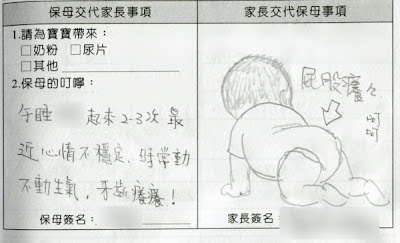 保母交代家長事項
家長交代保母事項
1.請為寶寶帶來：
□奶粉 □尿片
□其他
2.保母的叮嚀：
午睡 起來2-3次 最
近心情不穩定、時常動
不動生氣，牙齒癢癢！
屁股癢々
呵呵
保母簽名：
家長簽名：